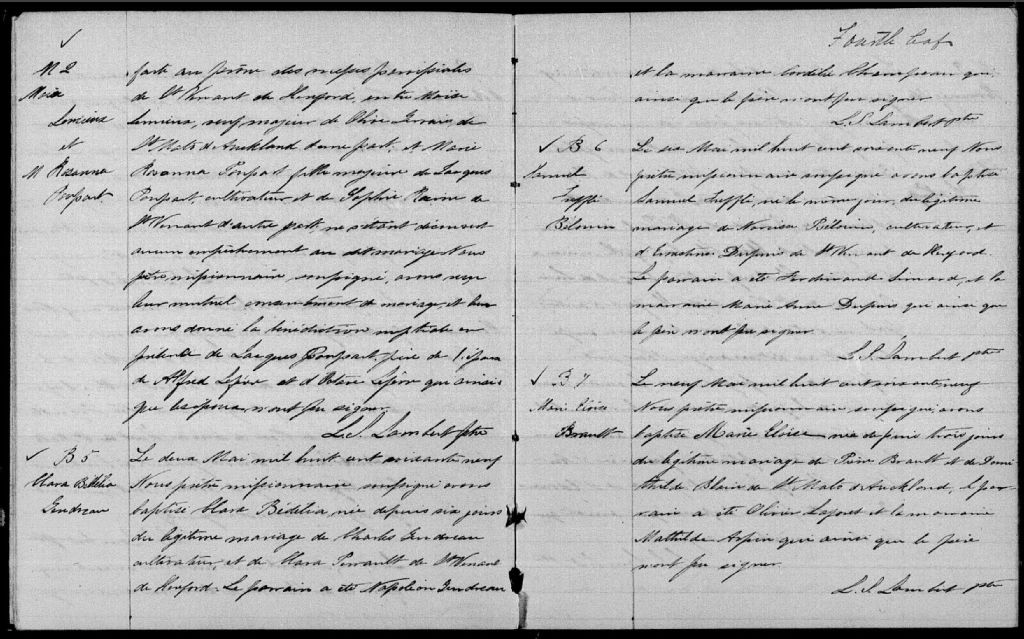 M 2
Moise
Lemieux
et
M Rosanna
Poupart.
faite au prône des messes paroissiales
de St Venant de Hereford, entre Moise
Lemieux, veuf majeur de Olive Gervais, de
St Malo d'Auckland d'une part, et Marie
Rosanna Poupart fille majeure de Jacques
Poupart, cultivateur et de Sophie Racine de
St Venant d'autre part, ne s'étant découvert
aucun empêchement au dit mariage Nous
prêtre missionnaire, soussigné, avons reçu
leur mutuel consentement de mariage, et leur
avons donné la bénédiction nuptiale en
présence de Jacques Poupart, père de l'épouse
de Alfred et d'
que les époux n'ont pu signer.
L. S. Lambert ptre
B 5
Clara Bédélia
Gendreau
Le deux Mai mil huit cent soixante neuf
Nous prêtre missionnaire soussigné avons
baptisé Clara Bédélia, née depuis six jours
du légitime mariage de Charles Gendreau
cultivateur, et de Clara Perrault de St Venant
de Hereford. Le parrain a été Napoléon Gendreau
Fourth
et la marraine Cordélie Champeau qui
ainsi que le père n'ont pu signer
L. S. Lambert ptre
B 6
Samuel
Le six Mai mil huit cent soixante neuf Nous
prêtre missionnaire soussigné avons baptisé
Samuel né le même jour, du légitime
mariage de cultivateur, et
d' Dupuis de St Venant de Hereford.
Le parrain a été Ferdinand et la
marraine Marie Anne Dupuis qui ainsi que
le père n'ont pu signer
L. S. Lambert ptre
B 7
Marie Eloise
Brault
Le neuf Mai mil huit cent soixante neuf
Nous prêtre missionnaire soussigné, avons
baptisé Marie Eloise née depuis trois jours
du légitime mariage de Pierre Brault et de Domi
thilde Blais de St Malo d'Auckland, le par-
rain a été Olivier Laforet et la marraine
Mathilde Arpin qui ainsi que le père
n'ont pu signer
L. S. Lambert ptre